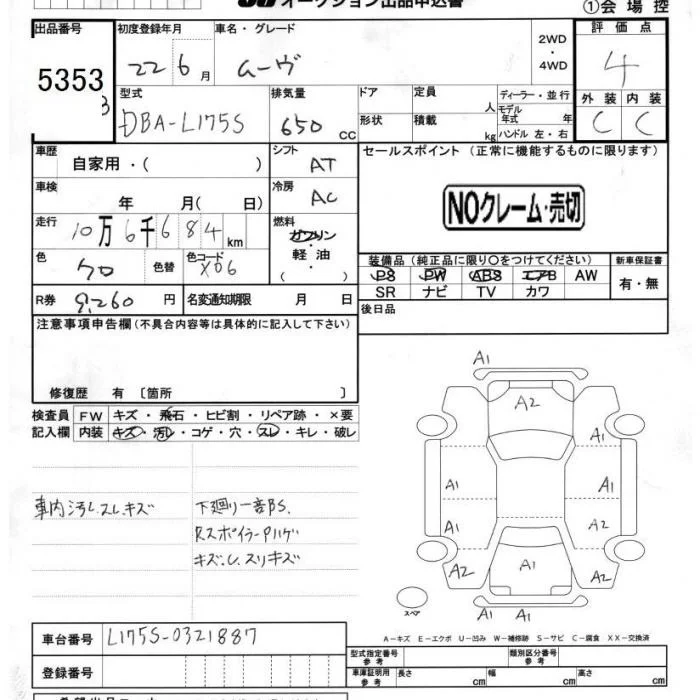 オークション出品申込書 ①会場控
出品番号 初度登録年月 車名・グレード 2WD・4WD 評価点
5353 22 6月 ムーヴ 4
3
型式 排気量 ドア 定員 人 ディーラー・並行 外装 内装
DBA-L175S 650 cc 形状 積載 kg モデル年式 年 C C
ハンドル 左・右
車歴 自家用・( ) シフト AT セールスポイント (正常に機能するものに限ります)
車検 年 月( 日) 冷房 AC NOクレーム・売切
走行 10万6千684km 燃料 ガソリン・軽油・( )
色 クロ 色替 色コード X06
装備品(純正品に限り○をつけてください) 新車保証書
PS PW ABS エアB AW 有・無
SR ナビ TV カワ
R券 9,260円 名変通知期限 月 日 後日品
注意事項申告欄(不具合内容等は具体的に記入して下さい)
修復歴 有 〔箇所 〕
検査員 FW キズ・飛石・ヒビ割・リペア跡・×要
記入欄 内装 キズ・汚レ・コゲ・穴・スレ・キレ・破レ
車内汚レスレキズ 下廻り一部BS.
RスポイラーPハゲ
キズ.U.スリキズ
A1
A2
A1
A1 A1
A1 A2
A2 A1 A2
A1 A1
スペア
A-キズ E-エクボ U-凹み W-補修跡 S-サビ C-腐食 XX-交換済
車台番号 L175S-0321887
型式指定番号 参考 類別区分番号 参考
登録番号 車庫証明用 参考 長さ cm 幅 cm 高さ cm